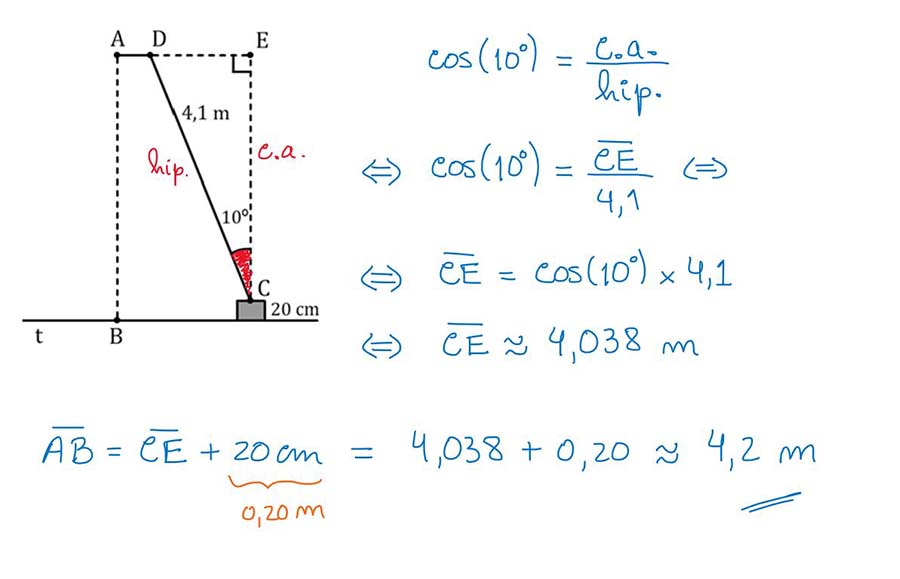 A D E
4,1 m
hip.
c.a.
10º
C
20 cm
t B
cos(10º) = c.a. / hip.
⇔ cos(10º) = CE / 4,1 ⇔
⇔ CE = cos(10º) × 4,1
⇔ CE ≈ 4,038 m
AB = CE + 20 cm = 4,038 + 0,20 ≈ 4,2 m
0,20 m